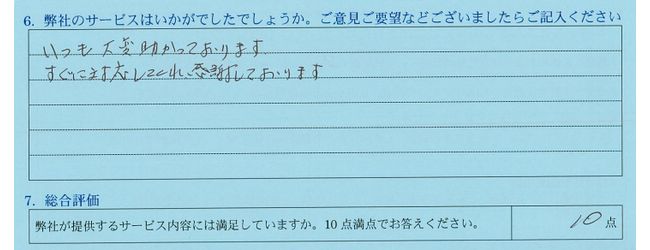 6. 弊社のサービスはいかがでしたでしょうか。ご意見ご要望などございましたらご記入ください
いつも大変助かっております
すぐに対応してくれ、感謝しております
7. 総合評価
弊社が提供するサービス内容には満足していますか。10点満点でお答えください。
10点